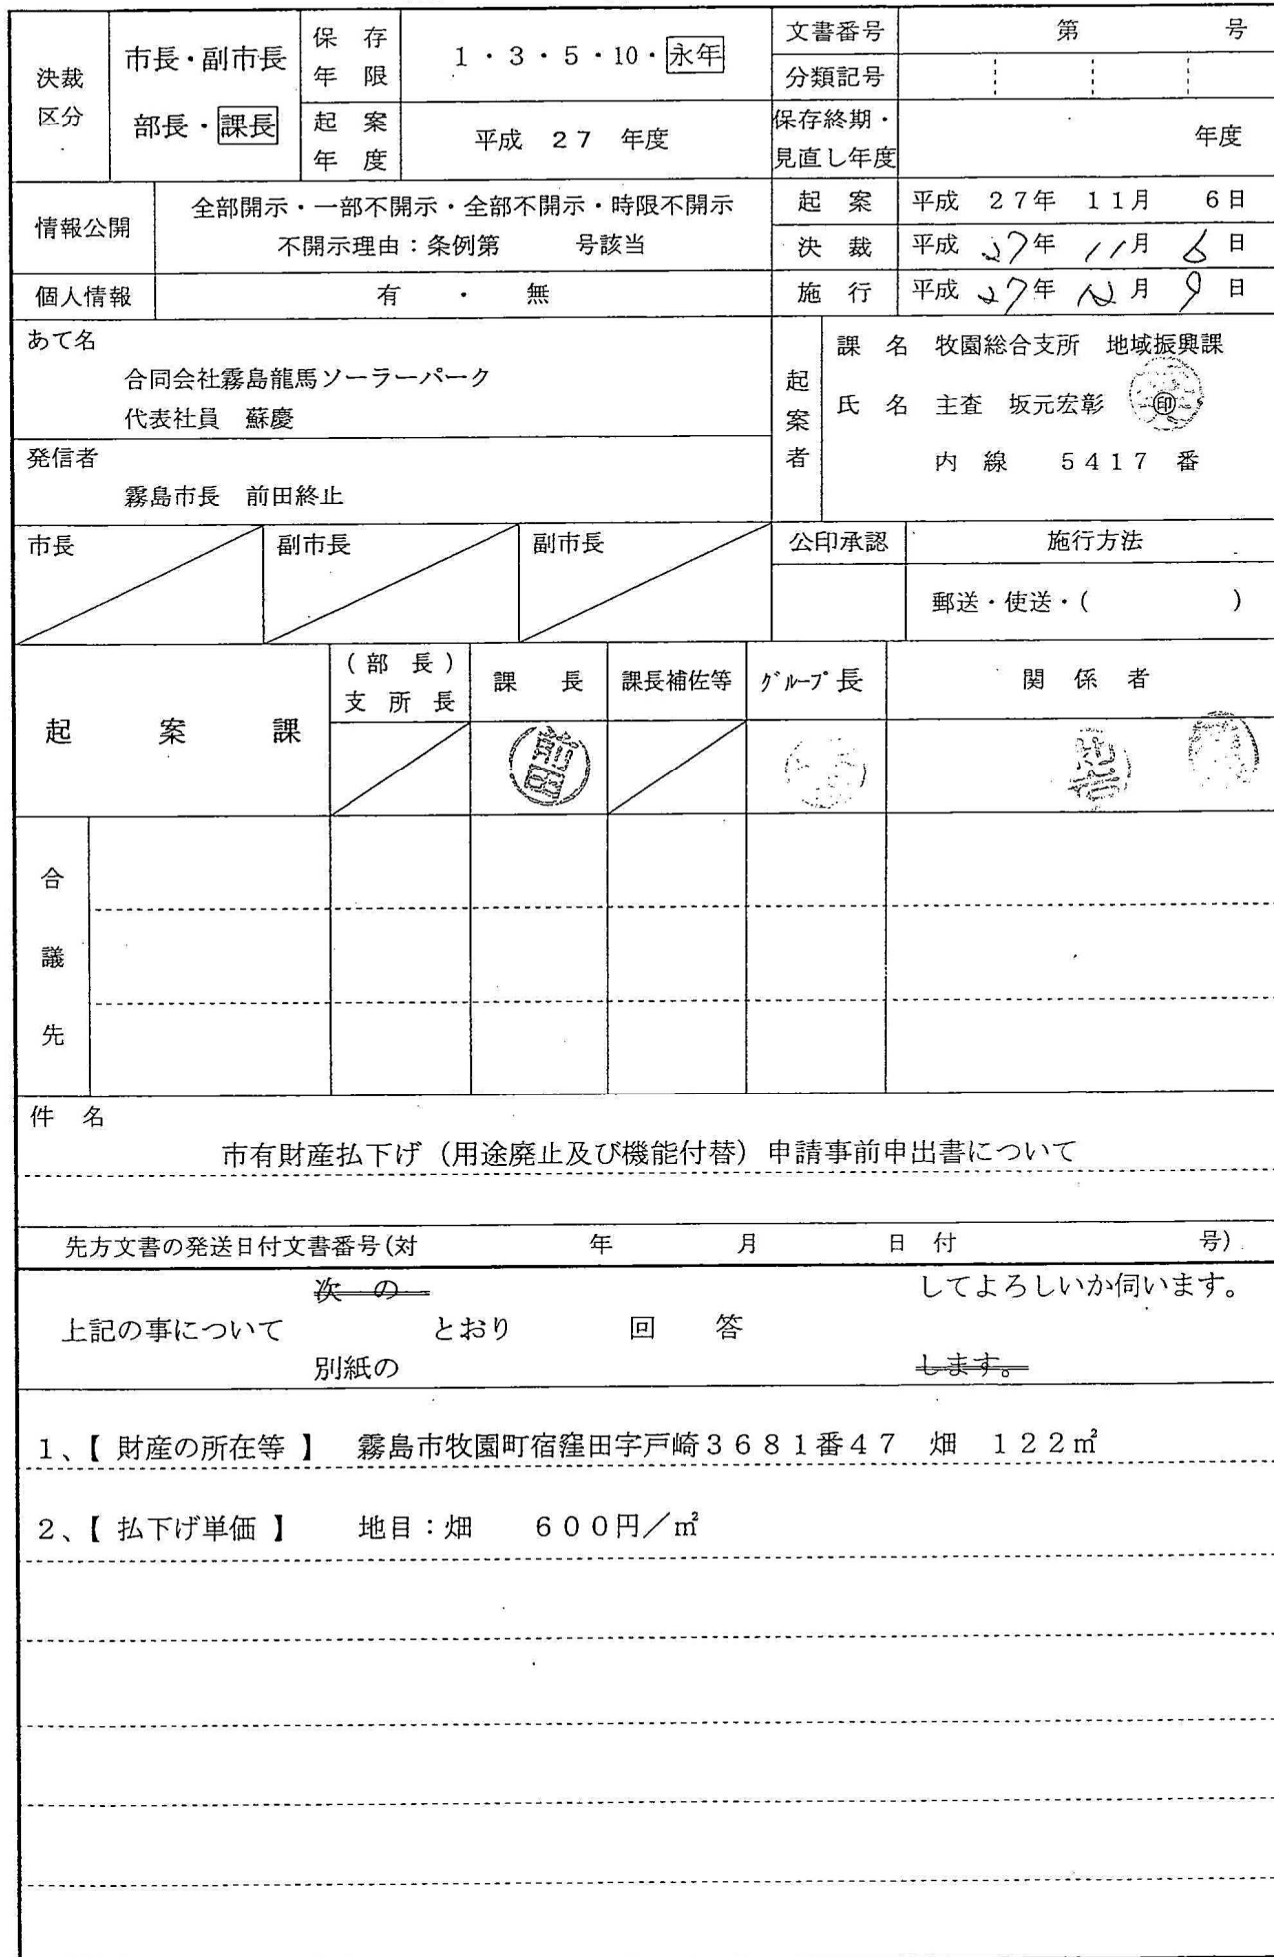 決裁区分
市長・副市長
部長・課長
保存年限
1・3・5・10・永年
起案年度
平成 27 年度
文書番号 第 号
分類記号
保存終期・見直し年度 年度
情報公開
全部開示・一部不開示・全部不開示・時限不開示
不開示理由：条例第 号該当
個人情報 有 ・ 無
起案 平成 27年 11月 6日
決裁 平成 27年 11月 6日
施行 平成 27年 月 9日
あて名
合同会社霧島龍馬ソーラーパーク
代表社員 蘇慶
発信者
霧島市長 前田終止
起案者
課名 牧園総合支所 地域振興課
氏名 主査 坂元宏彰 印
内線 5417 番
市長 副市長 副市長
公印承認 施行方法
郵送・使送・( )
起案課
(部長)支所長 課長 課長補佐等 グループ長 関係者
合議先
件名
市有財産払下げ（用途廃止及び機能付替）申請事前申出書について
先方文書の発送日付文書番号(対 年 月 日付 号)
次の してよろしいか伺います。
上記の事について とおり 回答
別紙の します。
1、【 財産の所在等 】 霧島市牧園町宿窪田字戸崎3681番47 畑 122㎡
2、【 払下げ単価 】 地目：畑 600円／㎡